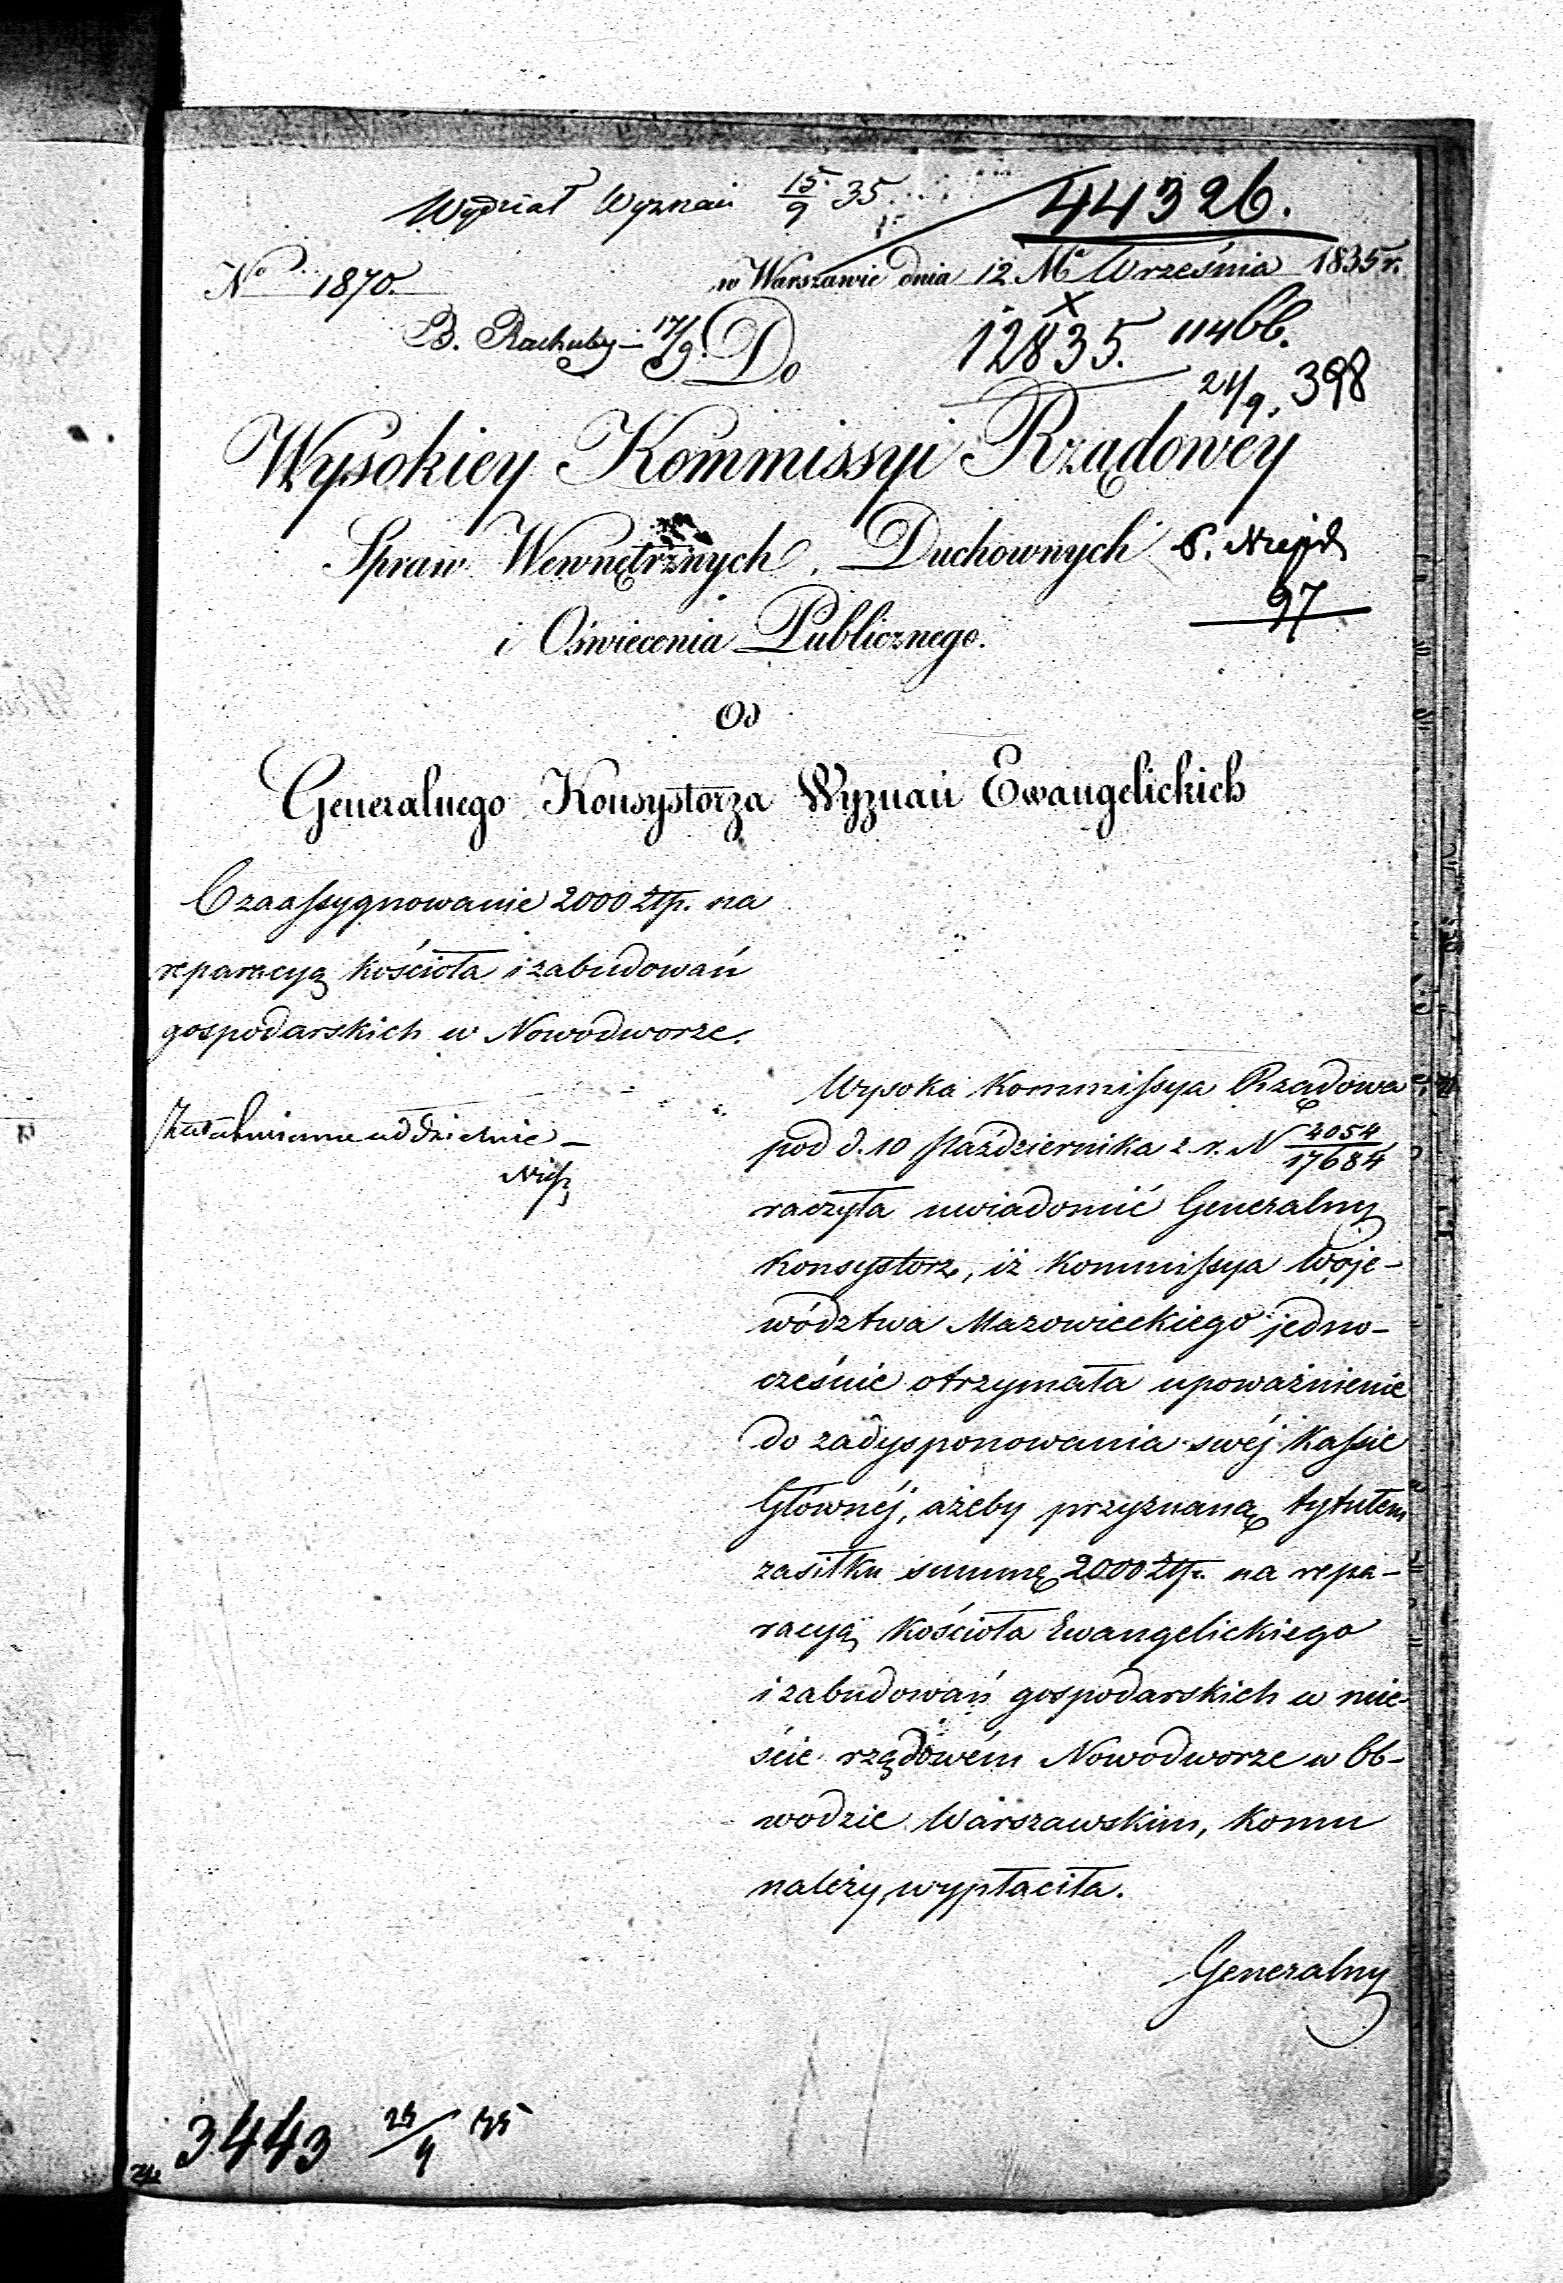 Wydział Wyznań 15/9 35.
44326.
No 1870.
w Warszawie dnia 12 Mca Września 1835 r.
B. Rachuby 17/9.
Do
12835. 114bb.
21/9. 398
Wysokiey Kommissyi Rządowéy
Spraw Wewnętrznych, Duchownych
97
i Oświecenia Publicznego.
Od
Generalnego Konsystorza Wyznań Ewangelickich
O zaassygnowanie 2000 Złp. na
reparacyą kościoła i zabudowań
gospodarskich w Nowodworze.
Załatwiono oddzielnie –
Wysoka Kommissya Rządowa
pod d. 10 Października z. r. N 4054/17684
raczyła uwiadomić Generalny
Konsystorz, iż Kommissya Woje-
wództwa Mazowieckiego jedno-
cześnie otrzymała upoważnienie
do zadysponowania swéj Kassie
Głównéj, ażeby przyznaną tytułem
zasiłku summę 2000 Złp. na repa-
racyą Kościoła Ewangelickiego
i zabudowań gospodarskich w mie-
ście rządowém Nowodworze w Ob-
wodzie Warszawskim, komu
należy, wypłaciła.
Generalny
3443 25/9 35